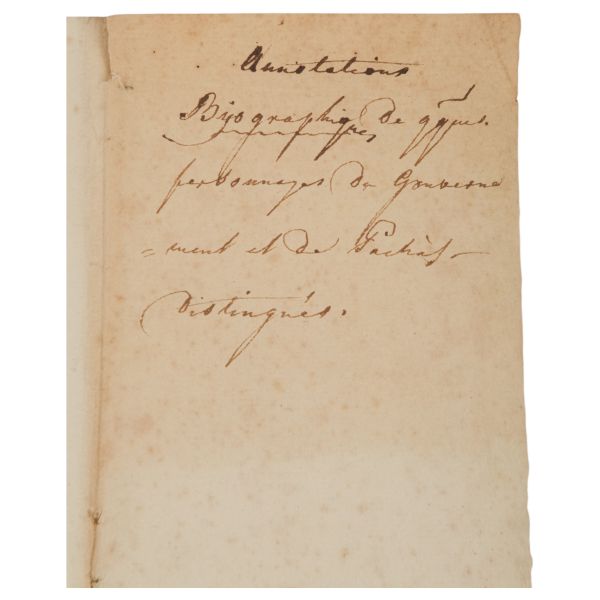 Annotations
Biyographiques de qques
personnages du Gouverne
=ment et de Pachas
distingués.